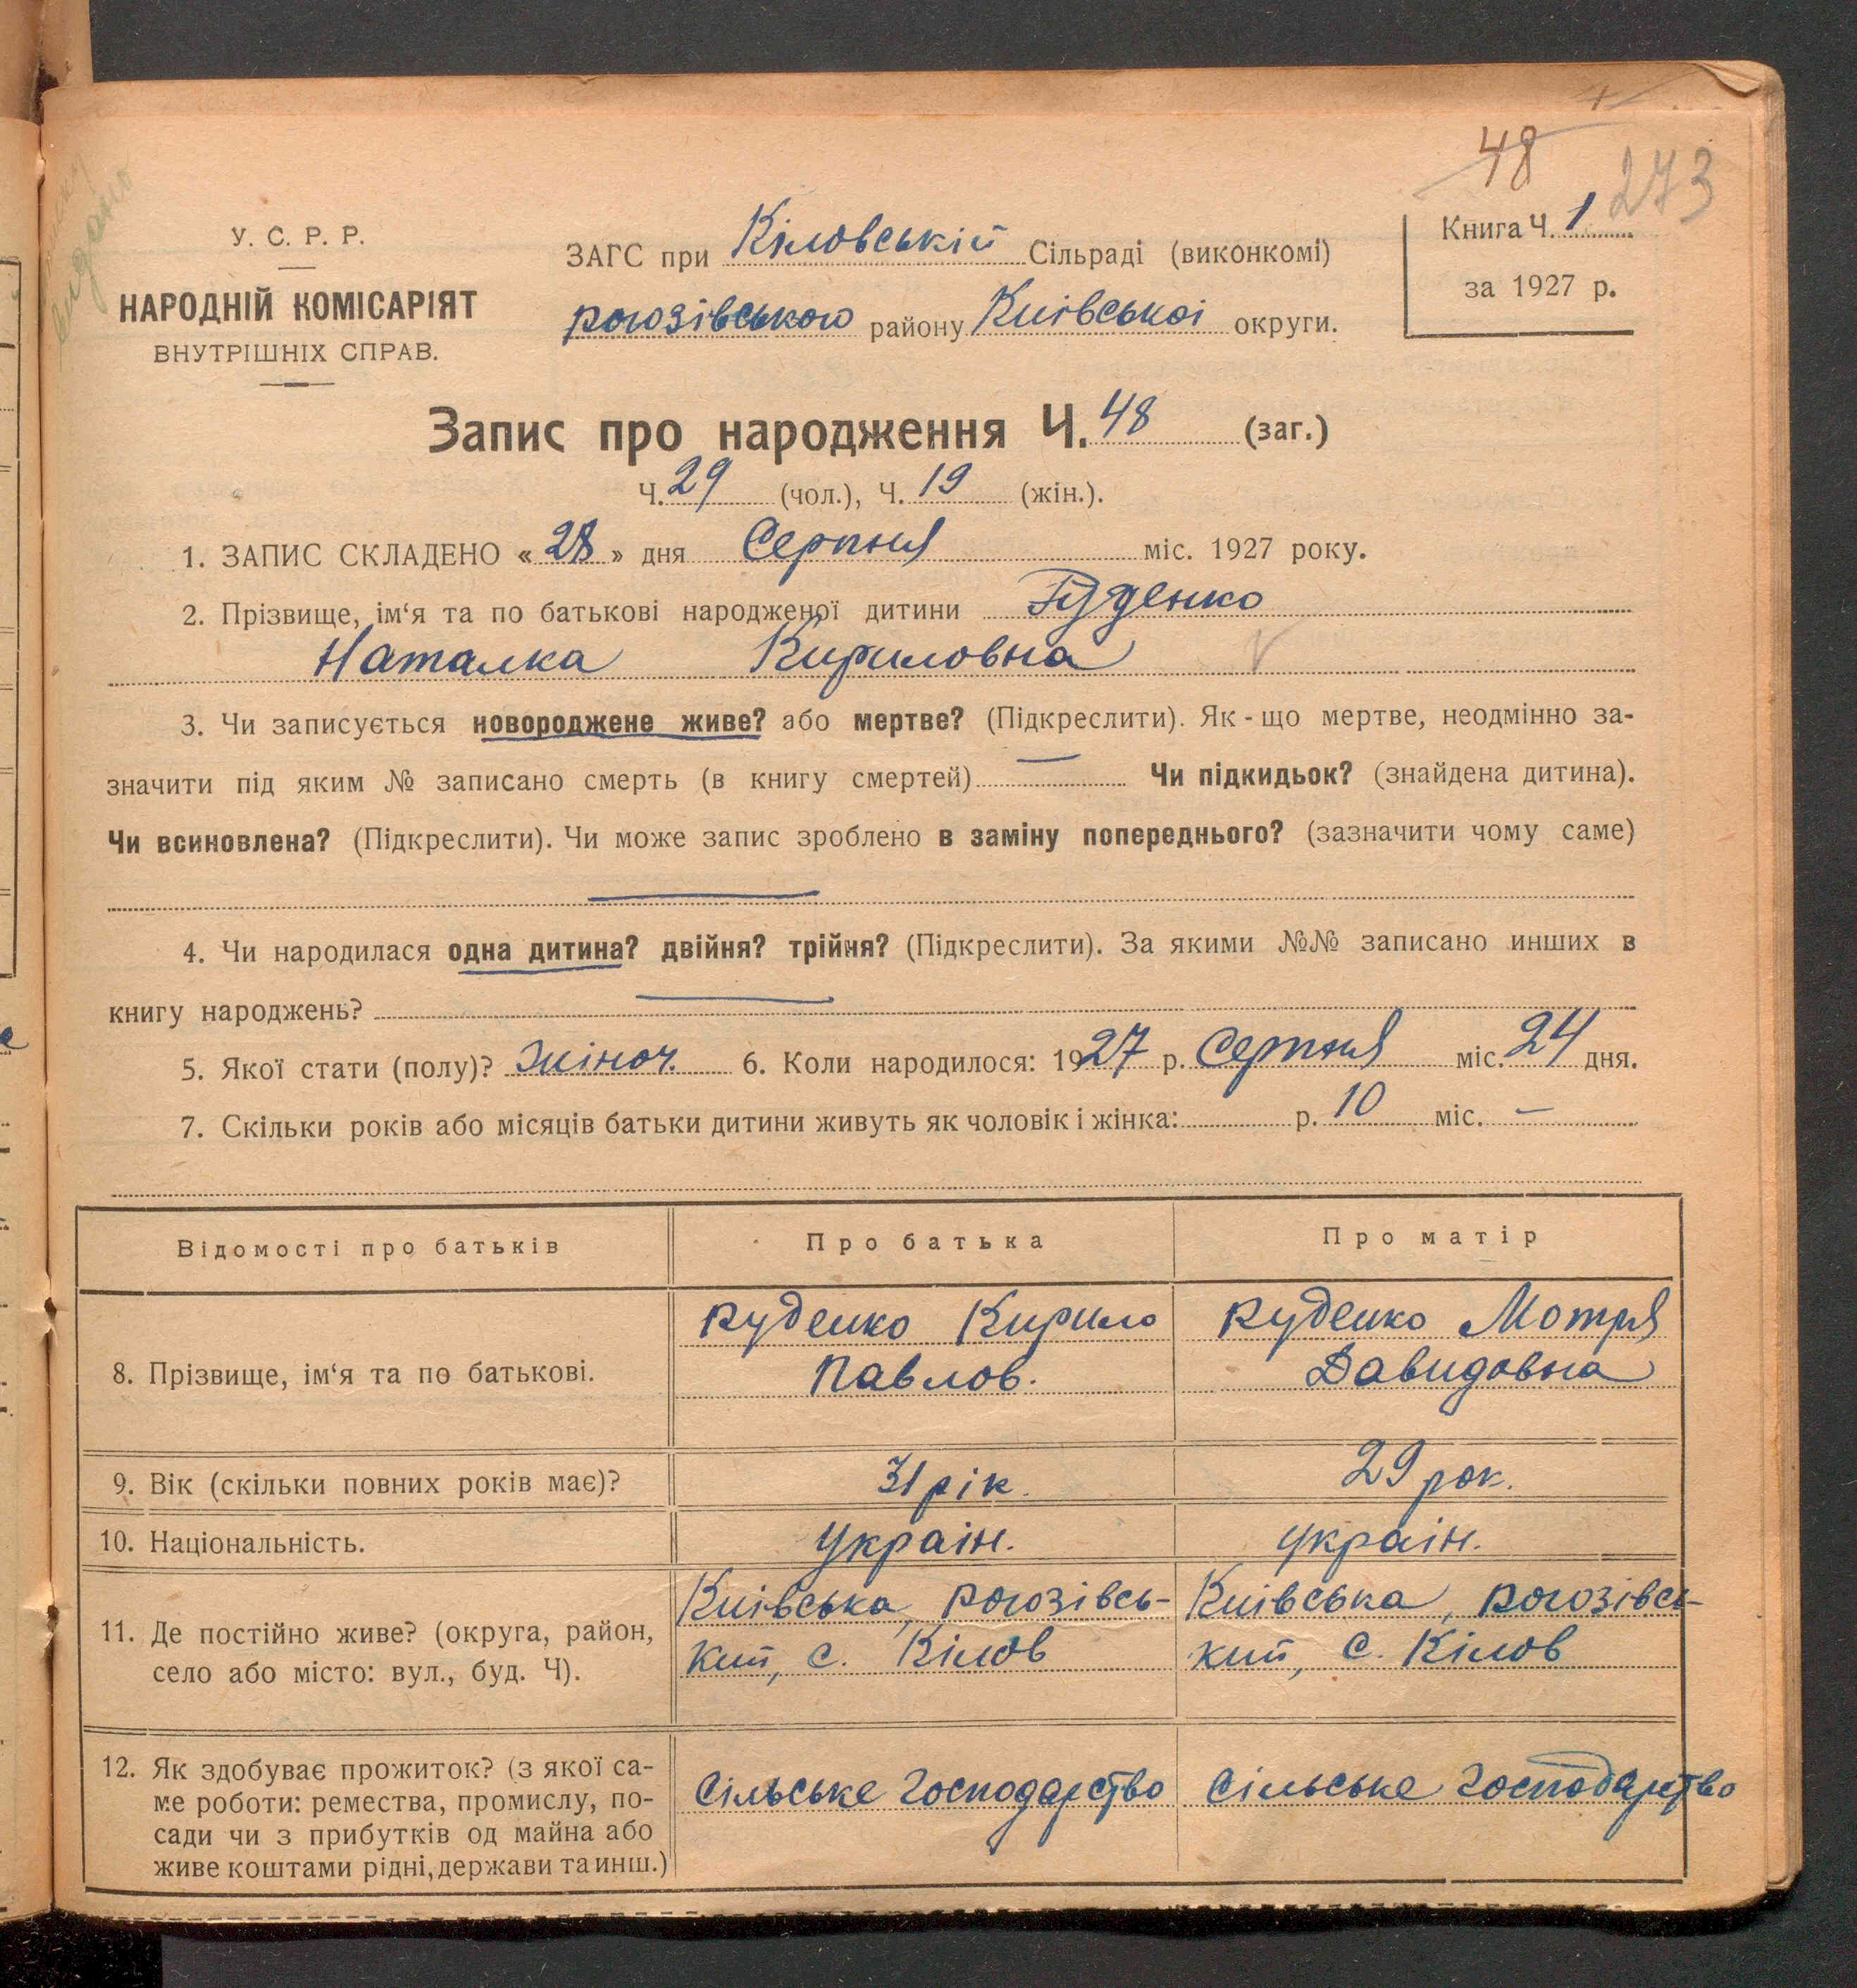 48
273
видано
У. С. Р. Р.
НАРОДНІЙ КОМІСАРІЯТ
ВНУТРІШНІХ СПРАВ.
ЗАГС при Кіловській Сільраді (виконкомі)
рогозівського району Київської округи.
Книга Ч. 1
за 1927 р.
Запис про народження Ч. 48 (заг.)
Ч. 29 (чол.), Ч. 19 (жін.).
1. ЗАПИС СКЛАДЕНО « 28 » дня Серпня міс. 1927 року.
2. Прізвище, ім‘я та по батькові народженої дитини Руденко
Наталка Кириловна
3. Чи записується новороджене живе? або мертве? (Підкреслити). Як - що мертве, неодмінно за-
значити під яким № записано смерть (в книгу смертей) — Чи підкидьок? (знайдена дитина).
Чи всиновлена? (Підкреслити). Чи може запис зроблено в заміну попереднього? (зазначити чому саме)
—
4. Чи народилася одна дитина? двійня? трійня? (Підкреслити). За якими №№ записано инших в
книгу народжень? —
5. Якої стати (полу)? Жіноч. 6. Коли народилося: 1927 р. Серпня міс. 24 дня.
7. Скільки років або місяців батьки дитини живуть як чоловік і жінка: р. 10 міс. —
Відомості про батьків Про батька Про матір
8. Прізвище, ім‘я та по батькові.
Руденко Кирило
Павлов.
Руденко Мотря
Давидовна
9. Вік (скільки повних років має)? 31 рік. 29 рок.
10. Національність. Україн. україн.
11. Де постійно живе? (округа, район,
село або місто: вул., буд. Ч).
Київська, рогозівсь-
кий, с. Кілов
Київська, рогозівсь-
кий, с. Кілов
12. Як здобуває прожиток? (з якої са-
ме роботи: ремества, промислу, по-
сади чи з прибутків од майна або
живе коштами рідні, держави та инш.)
Сільське господарство
Сільське господарство